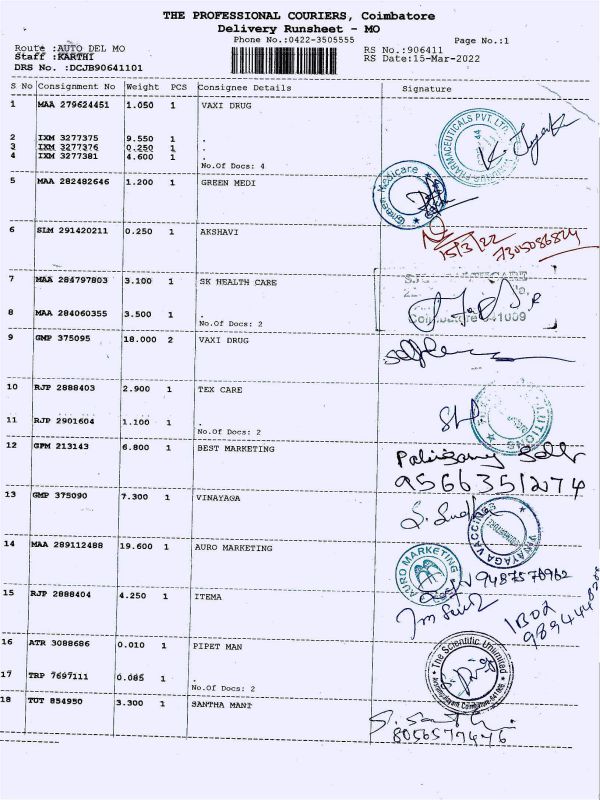 THE PROFESSIONAL COURIERS, Coimbatore
Delivery Runsheet - MO
Phone No.:0422-3505555 Page No.:1
Route :AUTO DEL MO RS No.:906411
Staff :KARTHI RS Date:15-Mar-2022
DRS No. :DCJB90641101
S No Consignment No Weight PCS Consignee Details Signature
1 MAA 279624451 1.050 1 VAXI DRUG
2 IXM 3277375 9.550 1 .
3 IXM 3277376 0.250 1 .
4 IXM 3277381 4.600 1 .
No.Of Docs: 4
5 MAA 282482646 1.200 1 GREEN MEDI
Green Medicare
6 SLM 291420211 0.250 1 AKSHAVI
15/3/22 7305086824
7 MAA 284797803 3.100 1 SK HEALTH CARE
8 MAA 284060355 3.500 1 .
No.Of Docs: 2
Coimbatore 641009
9 GMP 375095 18.000 2 VAXI DRUG
10 RJP 2888403 2.900 1 TEX CARE
11 RJP 2901604 1.100 1 .
No.Of Docs: 2
12 GPM 213143 6.800 1 BEST MARKETING
9566351274
13 GMP 375090 7.300 1 VINAYAGA
VINAYAGA VACCINES
14 MAA 289112488 19.600 1 AURO MARKETING
AURO MARKETING
9487570962
15 RJP 2888404 4.250 1 ITEMA
16 ATR 3088686 0.010 1 PIPET MAN
The Scientific Unlimited
17 TRP 7697111 0.085 1 .
No.Of Docs: 2
18 TUT 854950 3.300 1 SANTHA MANI
8056577476